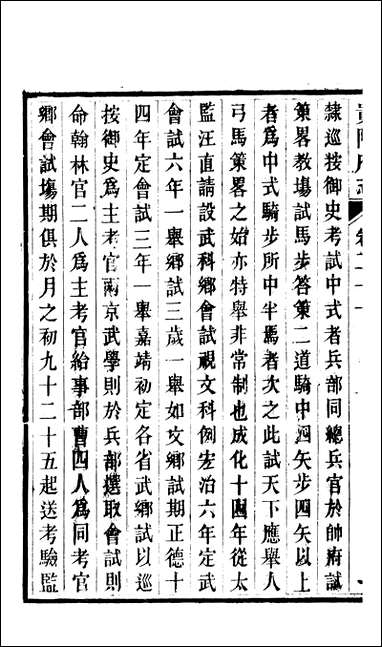 貴陽府志 卷二十
隸巡按御史考試中式者兵部同總兵官於帥府試
策畧教場試馬步答策二道騎中四矢步四矢以上
者爲中式騎步所中半馬者次之此試天下應舉人
弓馬策畧之始亦特舉非常制也成化十四年從太
監汪直請設武科鄉會試視文科例宏治六年定武
會試六年一舉鄉試三歲一舉如文鄉試期正德十
四年定會試三年一舉嘉靖初定各省武鄉試以巡
按御史爲主考官兩京武學則於兵部選取會試則
命翰林官二人爲主考官給事部曹四人爲同考官
鄉會試塲期俱於月之初九十二十五起送考驗監